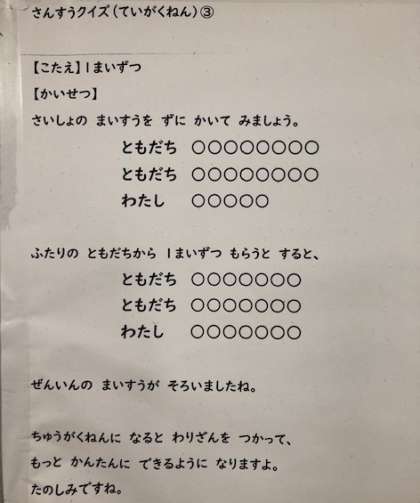 さんすうクイズ(ていがくねん)③
【こたえ】1まいずつ
【かいせつ】
さいしょの まいすうを ずに かいて みましょう。
ともだち ○○○○○○○○
ともだち ○○○○○○○○
わたし ○○○○○
ふたりの ともだちから 1まいずつ もらうと すると、
ともだち ○○○○○○○
ともだち ○○○○○○○
わたし ○○○○○○○
ぜんいんの まいすうが そろいましたね。
ちゅうがくねんに なると わりざんを つかって、
もっと かんたんに できるように なりますよ。
たのしみですね。